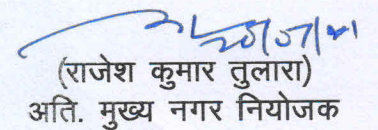 (राजेश कुमार तुलारा)
अति. मुख्य नगर नियोजक